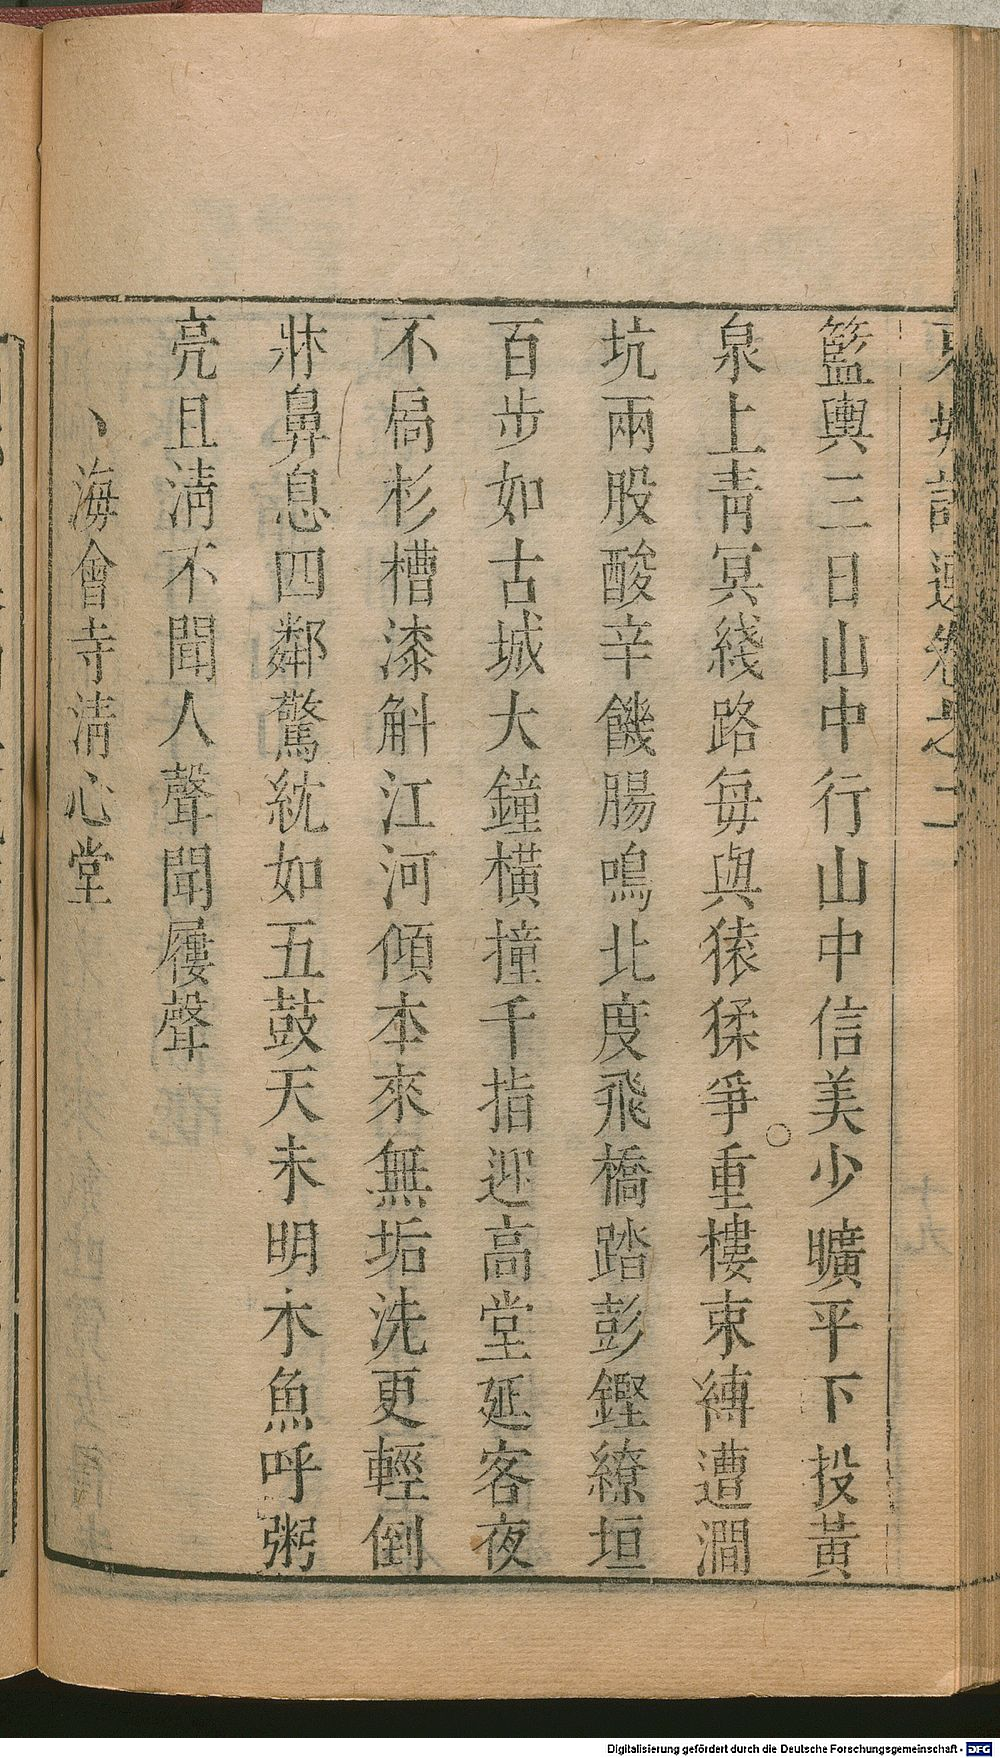 東坡詩選卷之二
籃輿三日山中行山中信美少曠平下投黃
泉上青冥綫路每與猿猱爭重樓束縛遭澗
坑兩股酸辛饑腸鳴北度飛橋踏彭鏗繚垣
百步如古城大鐘橫撞千指迎高堂延客夜
不扃杉槽漆斛江河傾本來無垢洗更輕倒
牀鼻息四鄰驚紞如五鼓天未明木魚呼粥
亮且清不聞人聲聞屨聲
海會寺清心堂
Digitalisierung gefördert durch die Deutsche Forschungsgemeinschaft - DFG